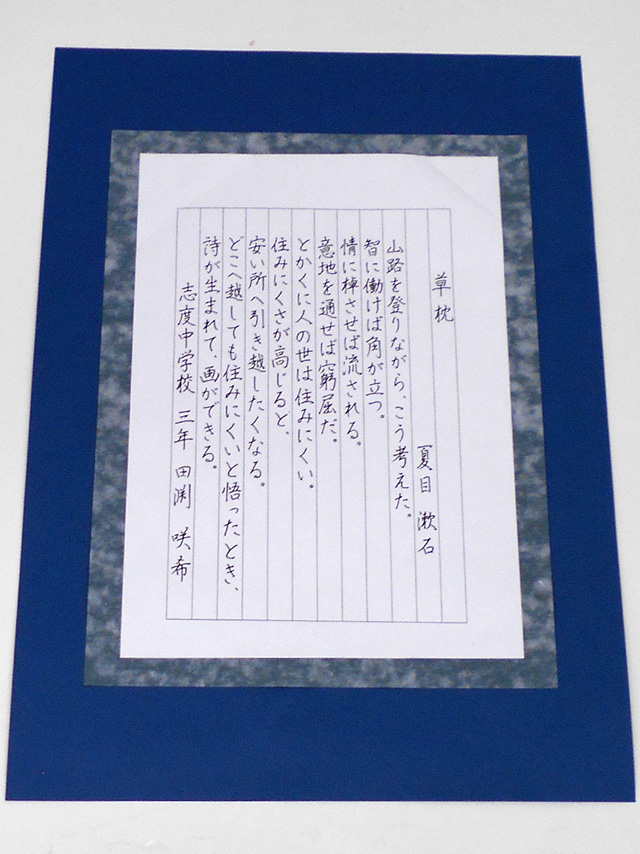 草枕
夏目漱石
山路を登りながら、こう考えた。
智に働けば角が立つ。
情に棹させば流される。
意地を通せば窮屈だ。
とかくに人の世は住みにくい。
住みにくさが高じると、
安い所へ引き越したくなる。
どこへ越しても住みにくいと悟ったとき、
詩が生まれて、画ができる。
志度中学校 三年 田渕 咲希